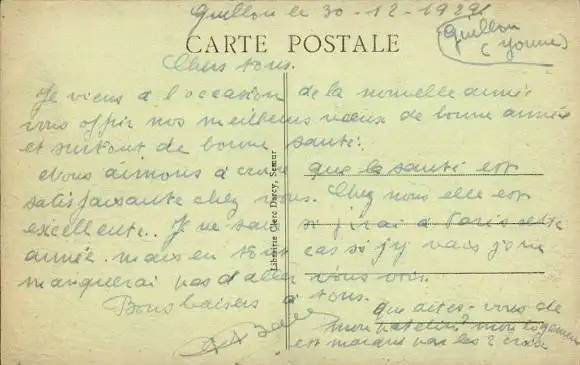 Guillon le 30-12-1929
Guillon
(Yonne)
CARTE POSTALE
Chers tous.
Je viens à l'occasion de la nouvelle année
vous offrir nos meilleurs vœux de bonne année
et surtout de bonne santé.
Nous aimons à croire que la santé est
satisfaisante chez vous. Chez nous elle est
excellente. Je ne sais si j'irai à Paris cette
année. mais en tout cas si j'y vais je ne
manquerai pas d'aller vous voir.
Bons baisers à tous.
que dites-vous de
mon patelin? mon logement
est marqué par les 2 croix
Librairie Clerc Darcy, Semur